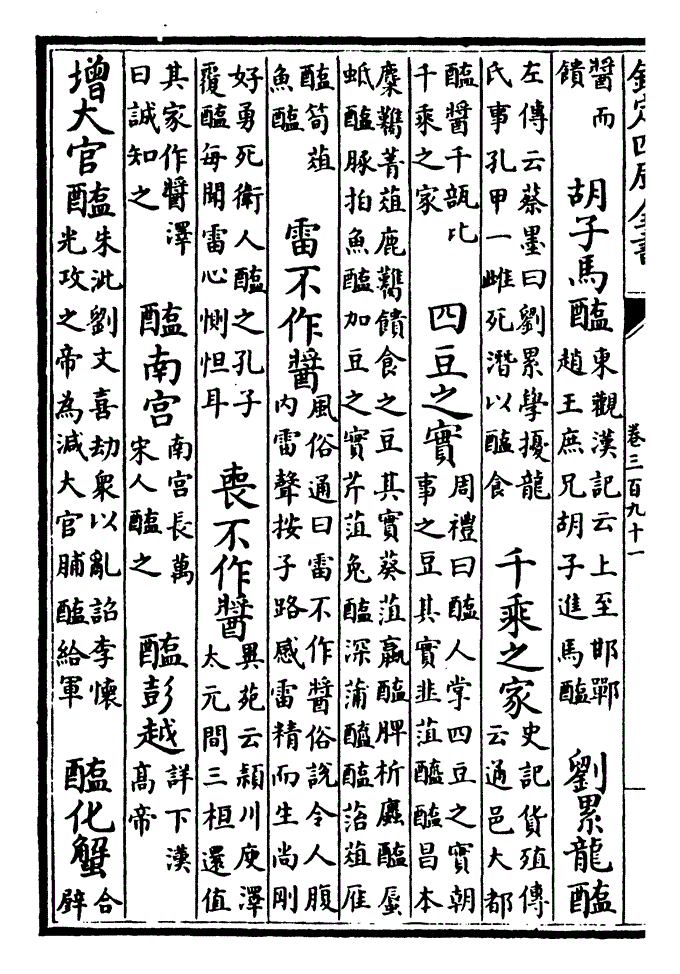 欽定四庫全書 卷三百九十一
醬而饋 胡子馬醢 東觀漢記云上至邯鄲趙王庶兄胡子進馬醢 劉累龍醢
左傳云蔡墨曰劉累學擾龍氏事孔甲一雌死潛以醢食 千乘之家 史記貨殖傳云通邑大都
醢醬千瓨比千乘之家 四豆之實 周禮曰醢人掌四豆之實朝事之豆其實韭菹醓醢昌本
麋臡菁菹鹿臡饋食之豆其實葵菹蠃醢脾析蠯醢蜃蚳醢豚拍魚醢加豆之實芹菹兔醢深蒲醓醢菭菹雁
醢筍菹魚醢 雷不作醬 風俗通曰雷不作醬俗說令人腹内雷聲按子路感雷精而生尚剛
好勇死衛人醢之孔子覆醢每聞雷心惻怛耳 喪不作醬 異苑云潁川庾澤太元間三桓還值
其家作醬澤曰誠知之 醢南宮 南宮長萬宋人醢之 醢彭越 詳下漢高帝
增大官醢 朱泚劉文喜劫衆以亂詔李懷光攻之帝為減大官脯醢給軍 醢化蟹 合璧